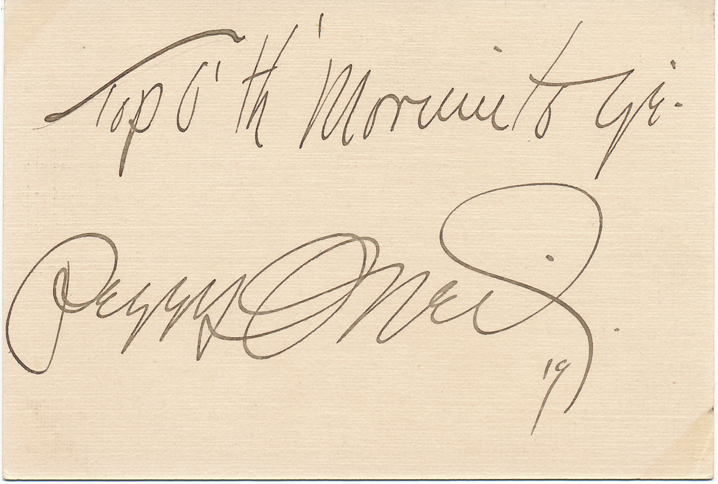 Top O' th' Mornin' to ye.
Peggy O'Neil.
19